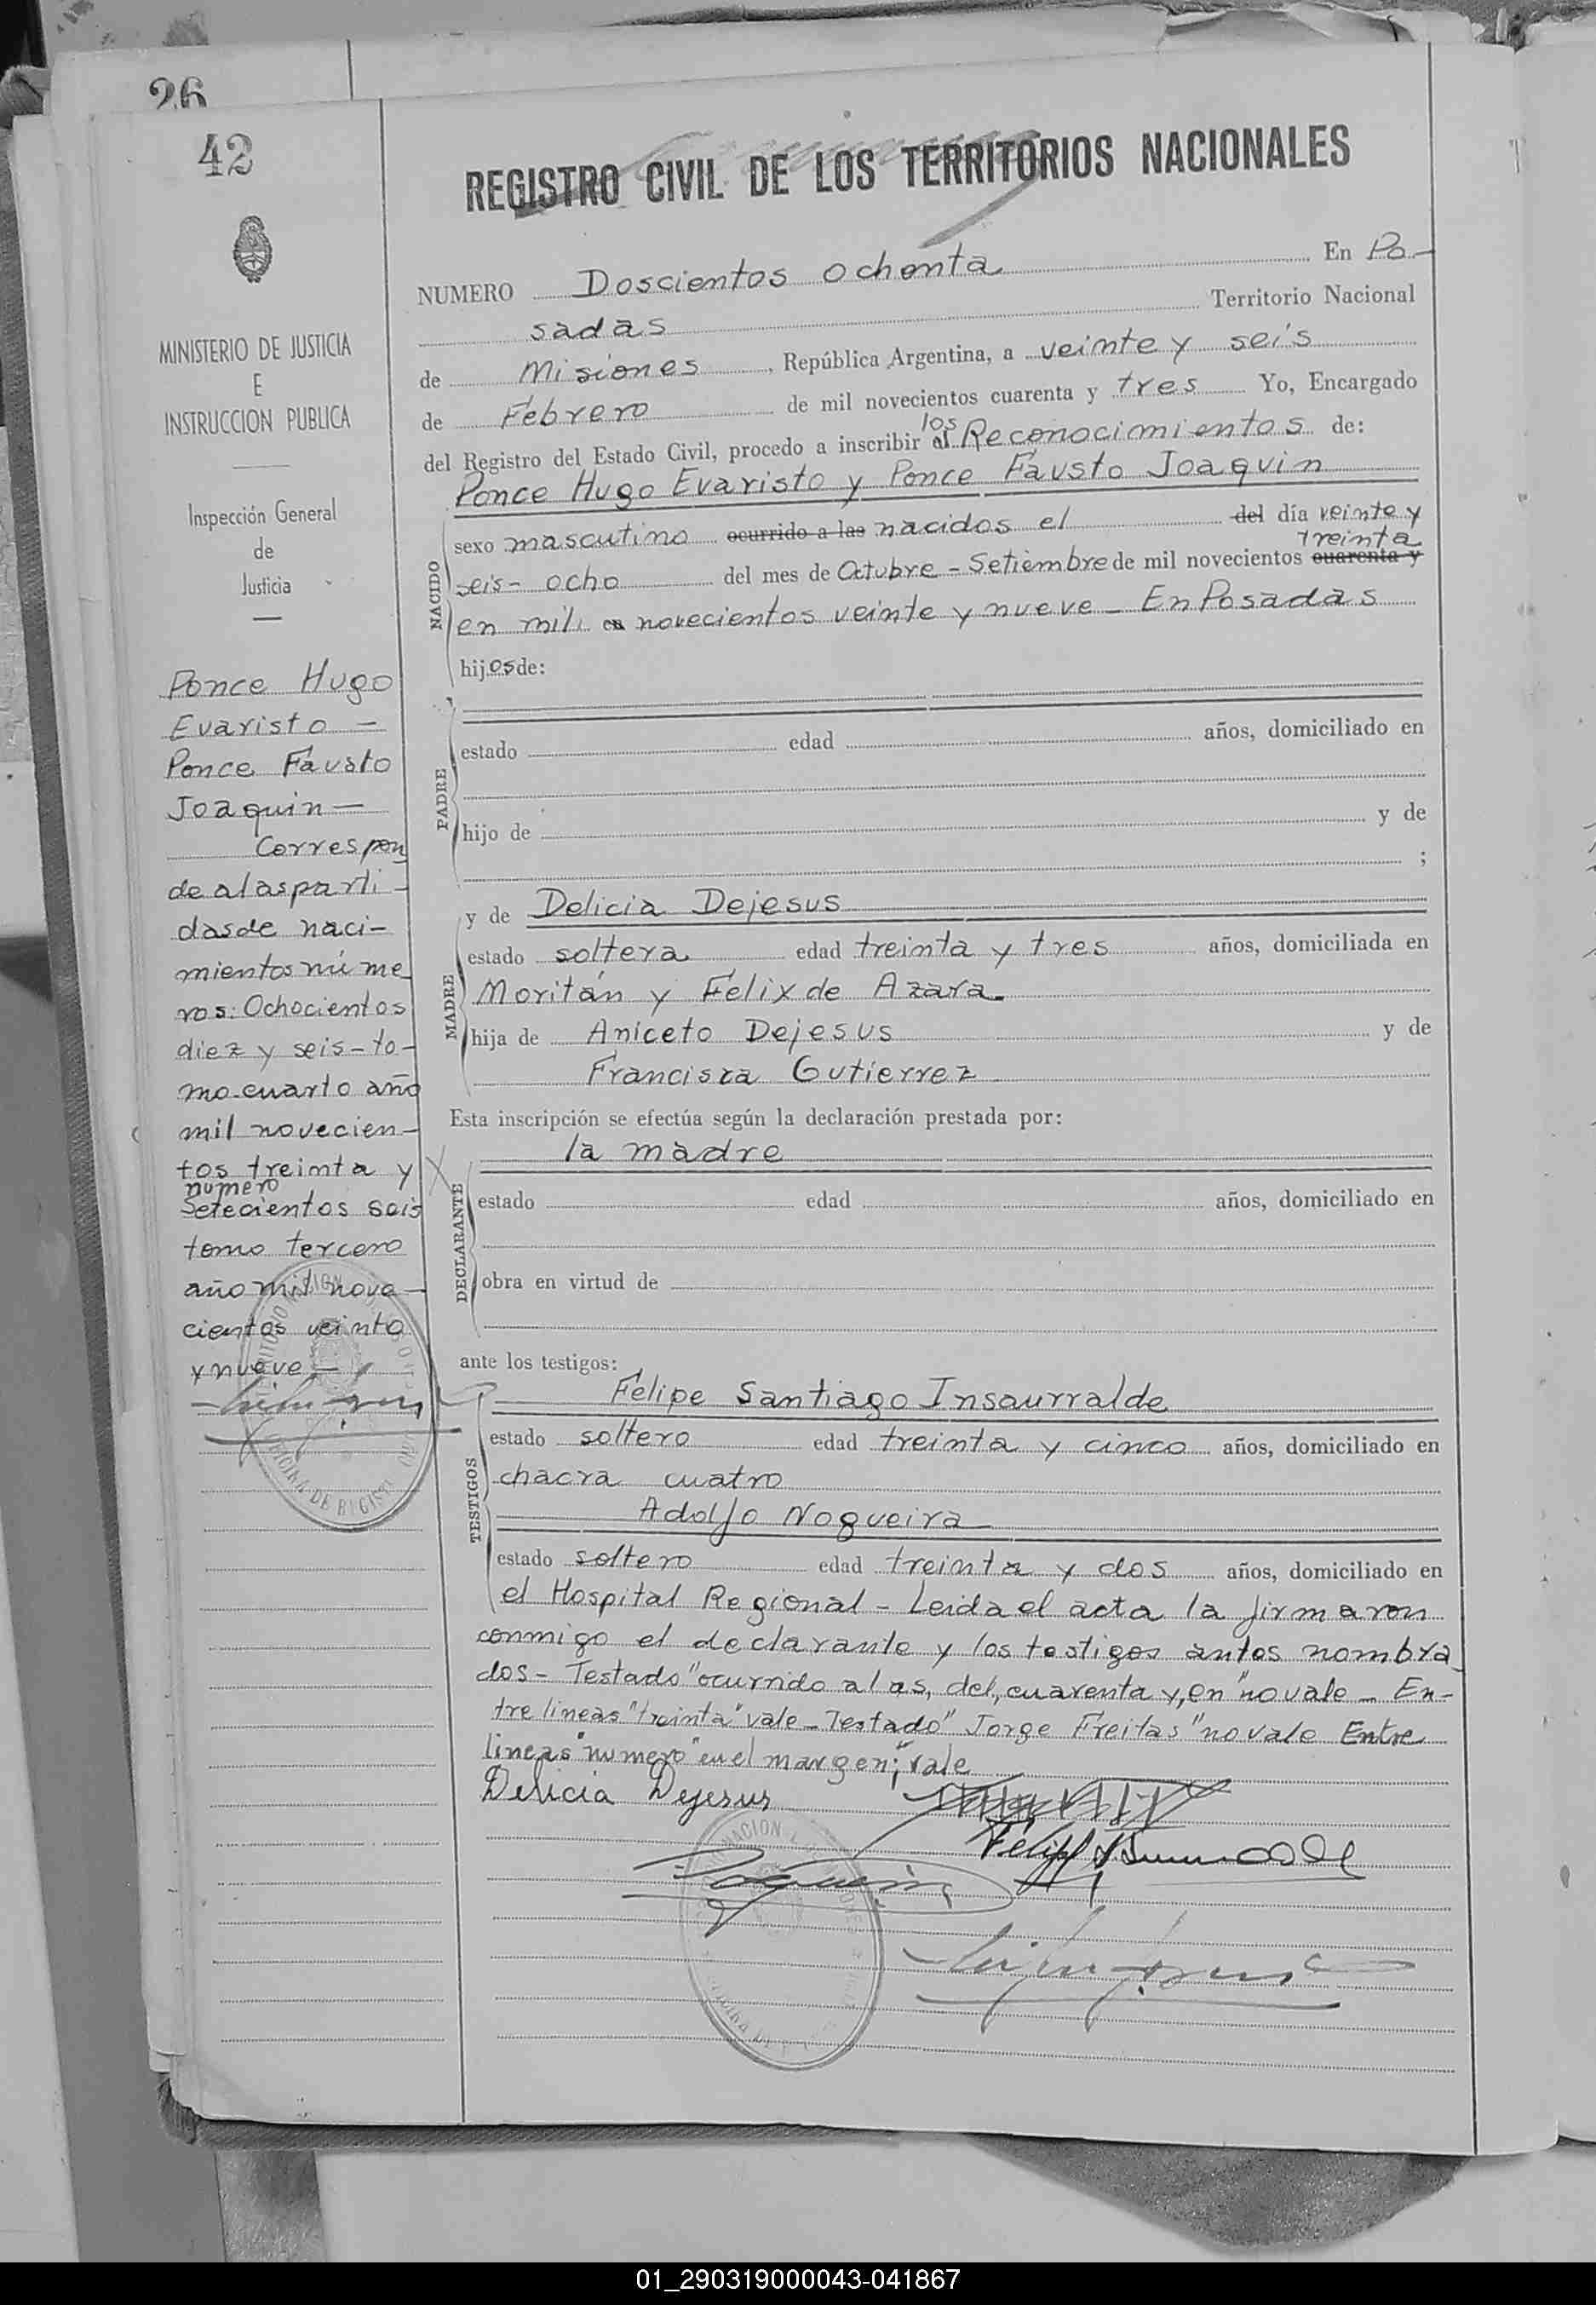 26
42
REGISTRO CIVIL DE LOS TERRITORIOS NACIONALES
MINISTERIO DE JUSTICIA
E
INSTRUCCION PUBLICA
Inspección General
de
Justicia
Ponce Hugo
Evaristo —
Ponce Fausto
Joaquin —
Correspon
de a las parti-
das de naci-
mientos núme
ros: Ochocientos
diez y seis - to-
mo cuarto año
mil novecien-
tos treinta y
numero
Setecientos seis
tomo tercero
año mil nove-
cientos veinte
y nueve —
NUMERO Doscientos ochenta En Po-
sadas Territorio Nacional
de Misiones, República Argentina, a veinte y seis
de Febrero de mil novecientos cuarenta y tres Yo, Encargado
del Registro del Estado Civil, procedo a inscribir los al Reconocimientos de:
Ponce Hugo Evaristo y Ponce Fausto Joaquin
NACIDO
sexo masculino ocurrido a las nacidos el del día veinte y
treinta
seis - ocho del mes de Octubre - Setiembre de mil novecientos cuarenta y
en mil en novecientos veinte y nueve - En Posadas
hijos de:
PADRE
estado edad años, domiciliado en
hijo de y de
;
MADRE
y de Delicia Dejesus
estado soltera edad treinta y tres años, domiciliada en
Moritán y Felix de Azara.
hija de Aniceto Dejesus y de
Francisca Gutierrez
Esta inscripción se efectúa según la declaración prestada por:
la madre
DECLARANTE
estado edad años, domiciliado en
obra en virtud de
ante los testigos:
TESTIGOS
Felipe Santiago Insaurralde
estado soltero edad treinta y cinco años, domiciliado en
chacra cuatro
Adolfo Nogueira
estado soltero edad treinta y dos años, domiciliado en
el Hospital Regional - Leida el acta la firmaron
conmigo el declarante y los testigos antes nombra
dos - Testado "ocurrido a las, del, cuarenta y, en" no vale - En-
tre lineas "treinta" vale - Testado "Jorge Freitas" no vale Entre
lineas "numero" en el margen; vale
Delicia Dejesus
01_290319000043-041867